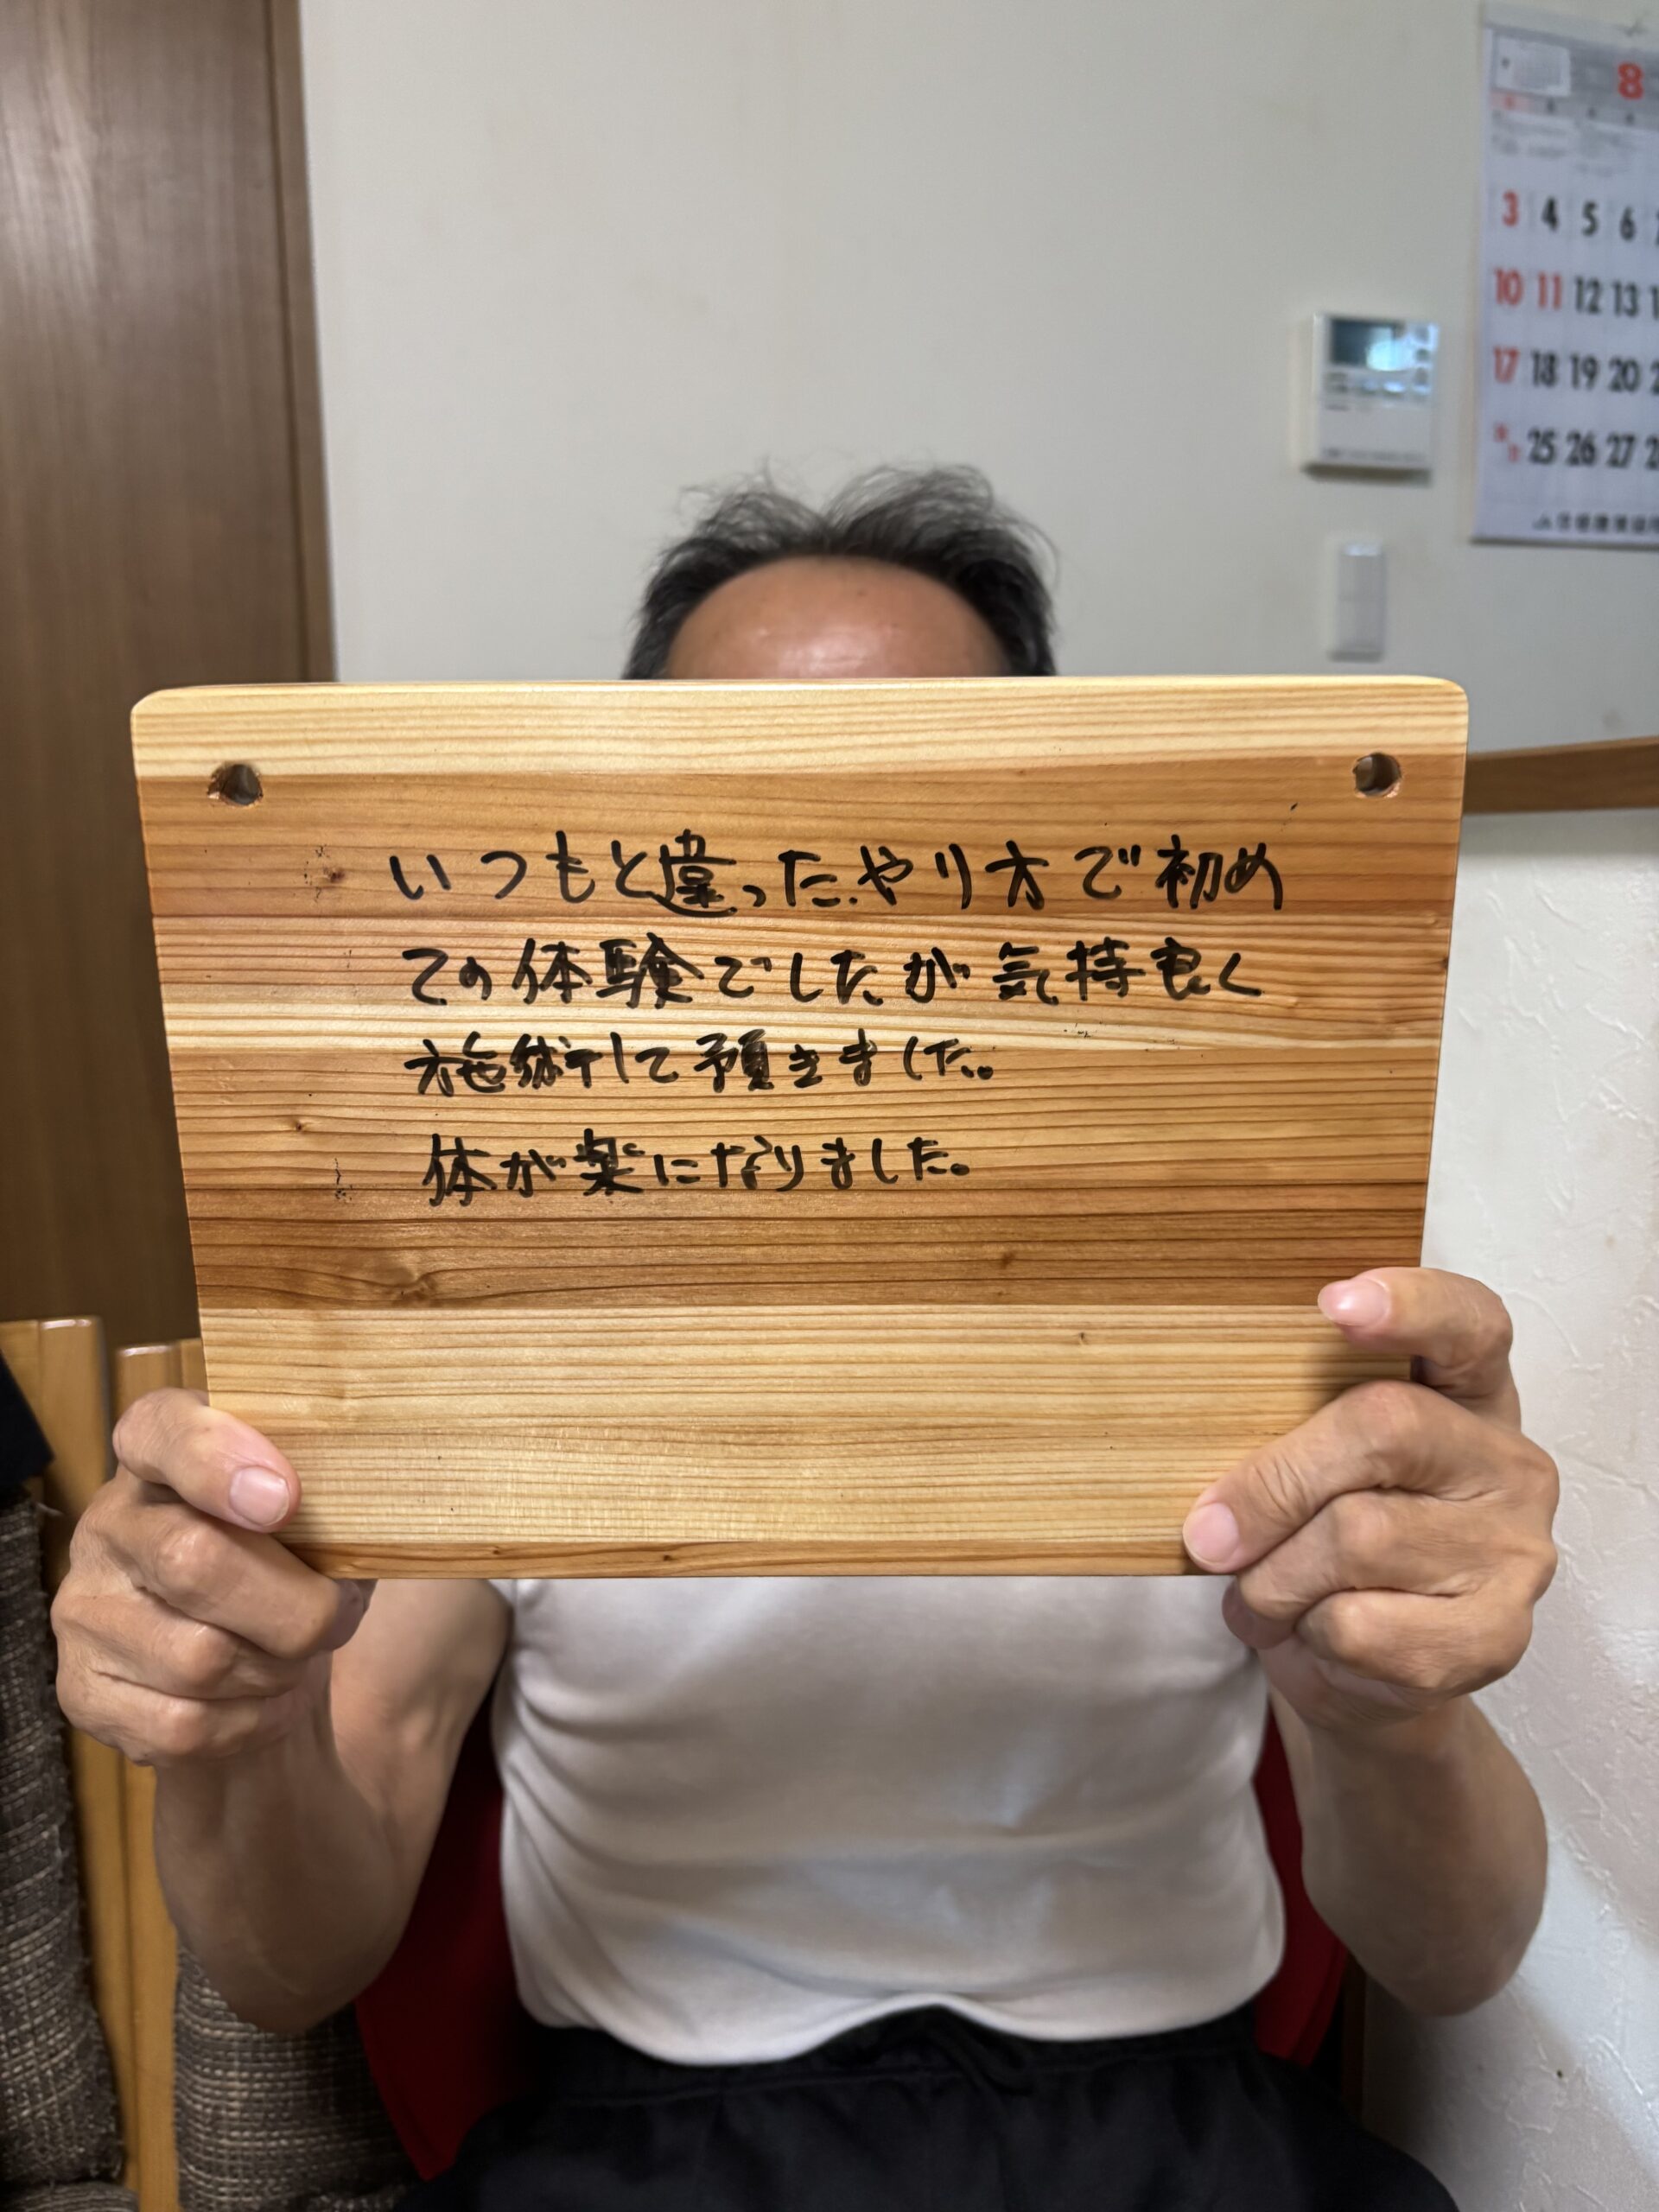 いつもと違ったやり方で初め
ての体験でしたが気持良く
施術して預きました。
体が楽になりました。
8
3 4 5 6
10 11 12 13
17 18 19 20
25 26 27